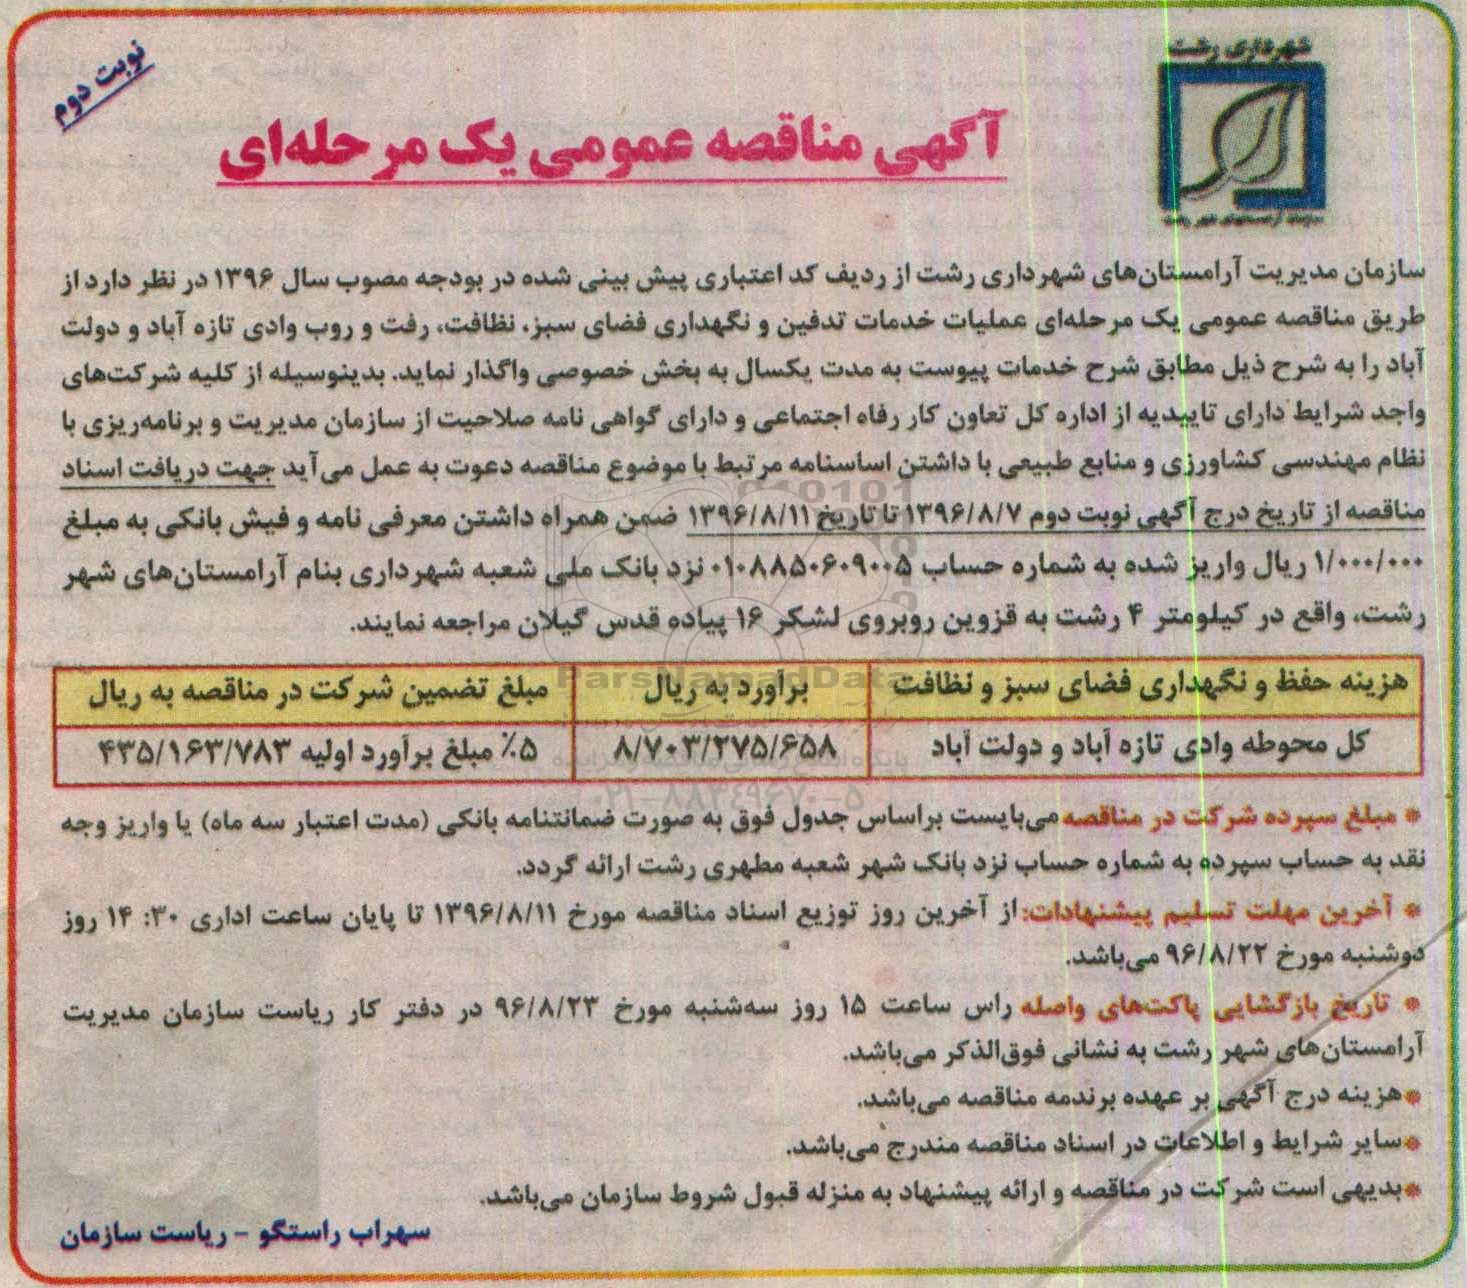 شهرداری رشت
سازمان آرامستانهای شهر رشت
نوبت دوم
آگهی مناقصه عمومی یک مرحله‌ای
سازمان مدیریت آرامستان‌های شهرداری رشت از ردیف کد اعتباری پیش بینی شده در بودجه مصوب سال ۱۳۹۶ در نظر دارد از
طریق مناقصه عمومی یک مرحله‌ای عملیات خدمات تدفین و نگهداری فضای سبز، نظافت، رفت و روب وادی تازه آباد و دولت
آباد را به شرح ذیل مطابق شرح خدمات پیوست به مدت یکسال به بخش خصوصی واگذار نماید. بدینوسیله از کلیه شرکت‌های
واجد شرایط دارای تاییدیه از اداره کل تعاون کار رفاه اجتماعی و دارای گواهی نامه صلاحیت از سازمان مدیریت و برنامه‌ریزی با
نظام مهندسی کشاورزی و منابع طبیعی با داشتن اساسنامه مرتبط با موضوع مناقصه دعوت به عمل می‌آید جهت دریافت اسناد
مناقصه از تاریخ درج آگهی نوبت دوم ۱۳۹۶/۸/۷ تا تاریخ ۱۳۹۶/۸/۱۱ ضمن همراه داشتن معرفی نامه و فیش بانکی به مبلغ
۱/۰۰۰/۰۰۰ ریال واریز شده به شماره حساب ۰۱۰۸۸۵۰۶۰۹۰۰۵ نزد بانک ملی شعبه شهرداری بنام آرامستان‌های شهر
رشت، واقع در کیلومتر ۴ رشت به قزوین روبروی لشکر ۱۶ پیاده قدس گیلان مراجعه نمایند.
هزینه حفظ و نگهداری فضای سبز و نظافت	برآورد به ریال	مبلغ تضمین شرکت در مناقصه به ریال
کل محوطه وادی تازه آباد و دولت آباد	۸/۷۰۳/۲۷۵/۶۵۸	۵٪ مبلغ برآورد اولیه ۴۳۵/۱۶۳/۷۸۳
* مبلغ سپرده شرکت در مناقصه می‌بایست براساس جدول فوق به صورت ضمانتنامه بانکی (مدت اعتبار سه ماه) یا واریز وجه
نقد به حساب سپرده به شماره حساب نزد بانک شهر شعبه مطهری رشت ارائه گردد.
* آخرین مهلت تسلیم پیشنهادات: از آخرین روز توزیع اسناد مناقصه مورخ ۱۳۹۶/۸/۱۱ تا پایان ساعت اداری ۱۴:۳۰ روز
دوشنبه مورخ ۹۶/۸/۲۲ می‌باشد.
* تاریخ بازگشایی پاکت‌های واصله راس ساعت ۱۵ روز سه‌شنبه مورخ ۹۶/۸/۲۳ در دفتر کار ریاست سازمان مدیریت
آرامستان‌های شهر رشت به نشانی فوق‌الذکر می‌باشد.
*هزینه درج آگهی بر عهده برندمه مناقصه می‌باشد.
*سایر شرایط و اطلاعات در اسناد مناقصه مندرج می‌باشد.
*بدیهی است شرکت در مناقصه و ارائه پیشنهاد به منزله قبول شروط سازمان می‌باشد.
سهراب راستگو - ریاست سازمان
ParsNamadData
۰۲۱-۸۸۳۴۹۶۷۰-۵